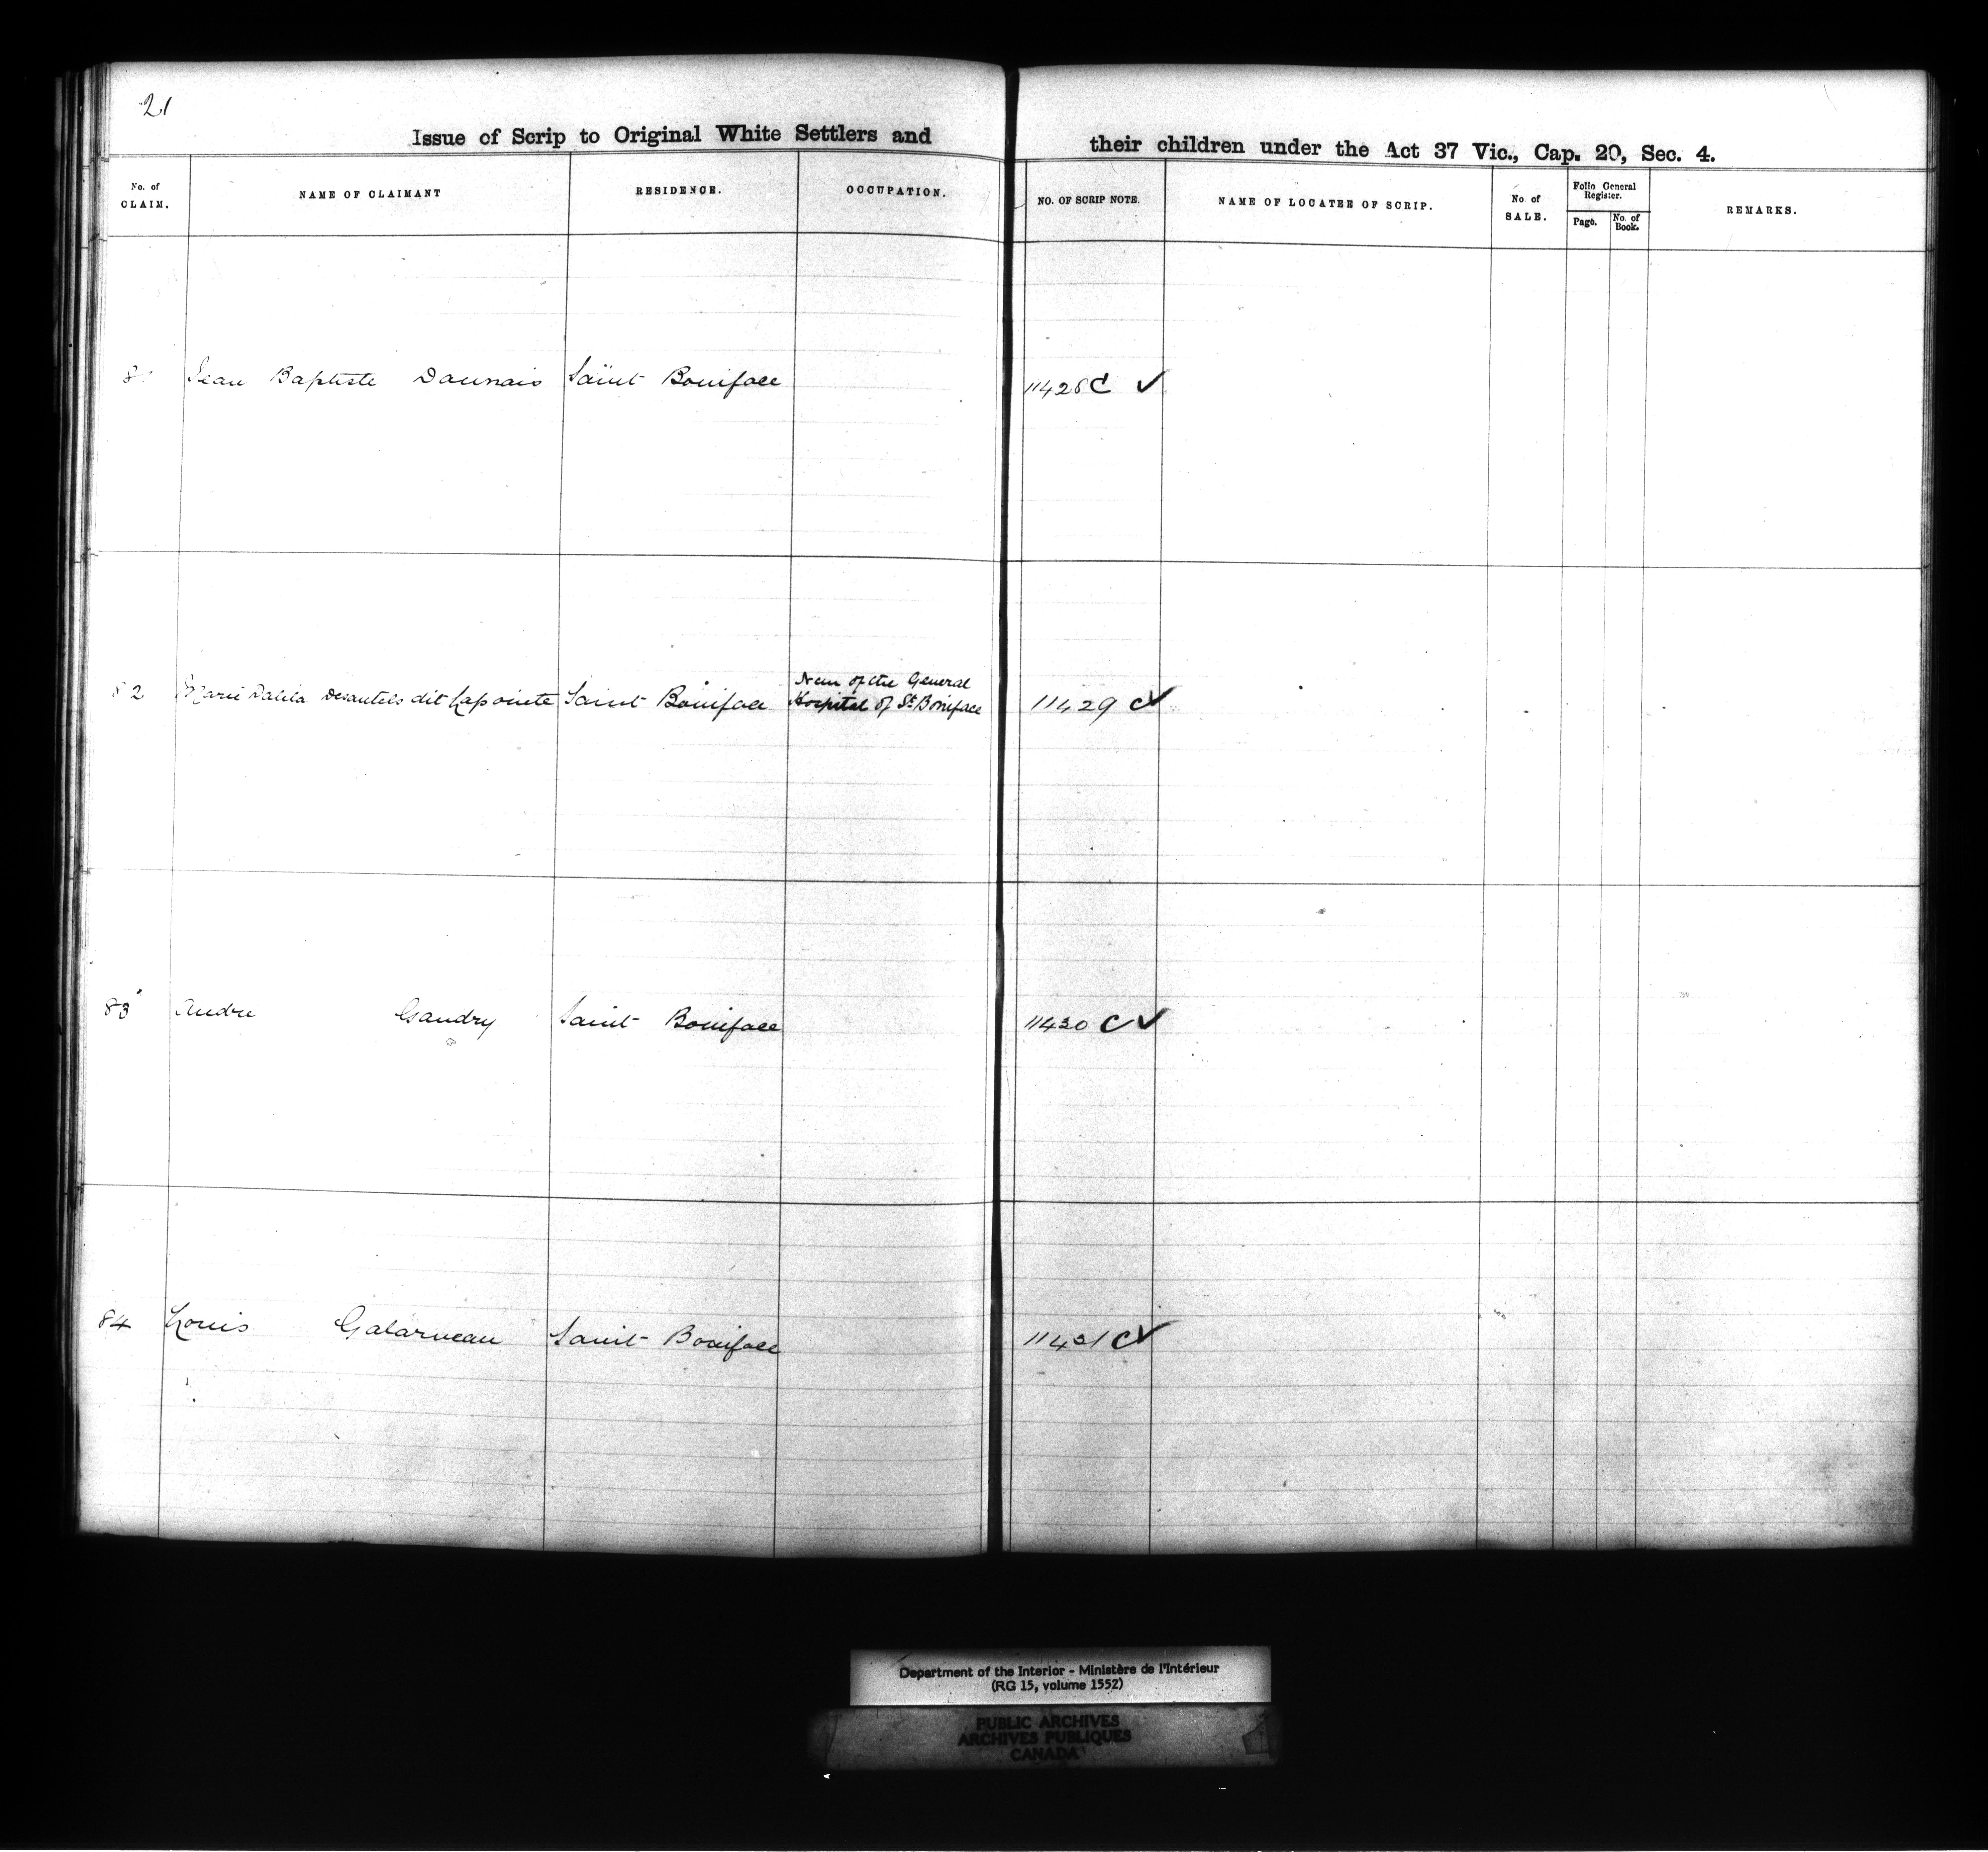 21
Issue of Scrip to Original White Settlers and their children under the Act 37 Vic., Cap. 20, Sec. 4.
No. of CLAIM. NAME OF CLAIMANT RESIDENCE. OCCUPATION. NO. OF SCRIP NOTE. NAME OF LOCATEE OF SCRIP. No. of SALE. Folio General Register. Page. No. of Book. REMARKS.
Jean Baptiste Daunais Saint Boniface 11428 C ✓
82 Marie Dalila Desautels dit Lapointe Saint Boniface Nun of the General Hospital of St. Boniface 11429 C ✓
83 Andre Gaudry Saint Boniface 11430 C ✓
84 Louis Galarneau Saint Boniface 11431 C ✓
Department of the Interior - Ministère de l'Intérieur
(RG 15, volume 1552)
PUBLIC ARCHIVES
ARCHIVES PUBLIQUES
CANADA